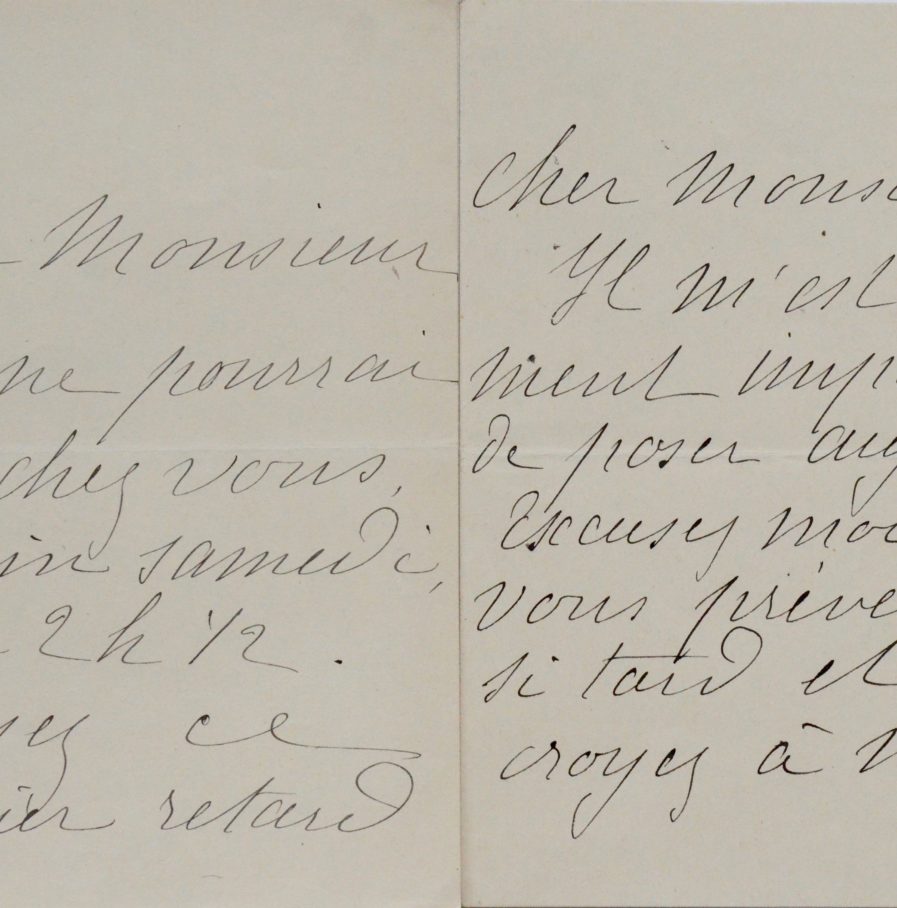 Monsieur
ne pourrai
chez vous,
in samedi,
2 h 1/2.
sez ce
ier retard
cher Monsi
Il m'est
ment imp
de poser auj
Excusez moi
vous préve
si tard et
croyez à